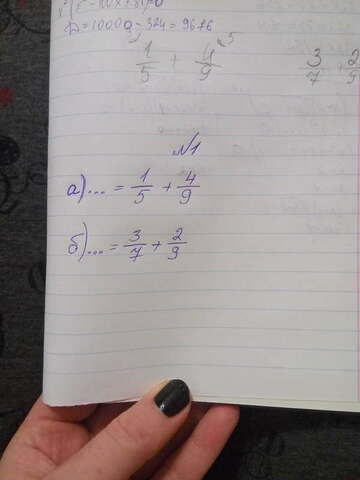 D = 10000 - 324 = 9676
1/5 + 4/9
3/7 2/9
№1
а)... = 1/5 + 4/9
б)... = 3/7 + 2/9